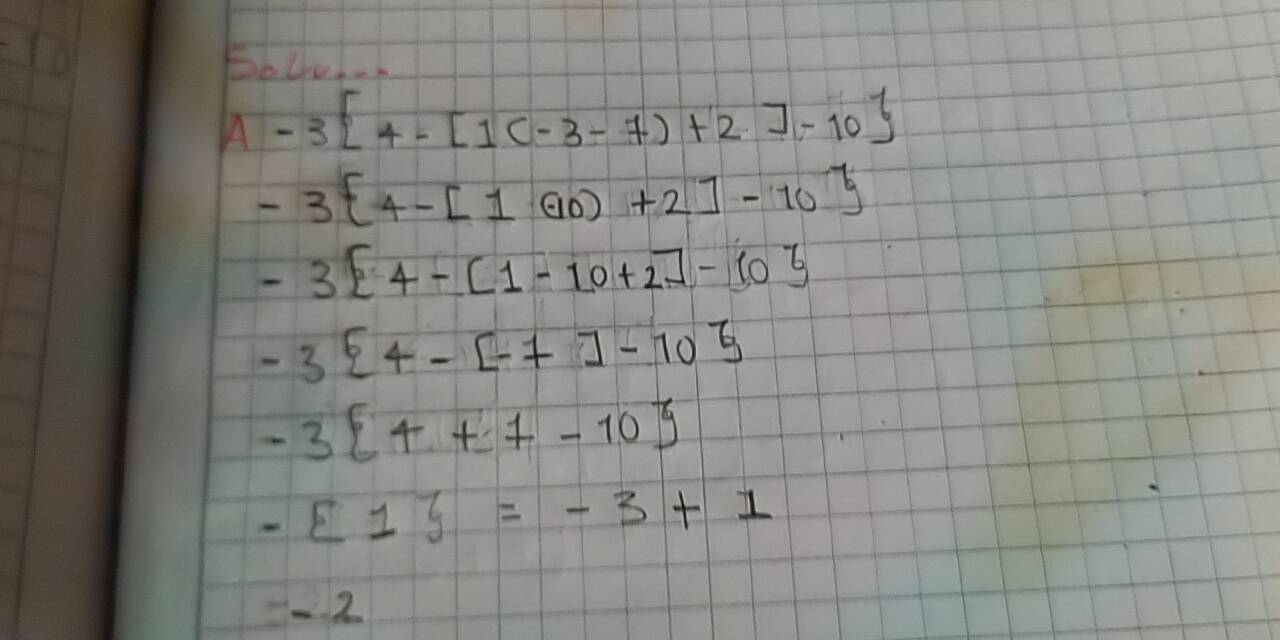 Solu....
A -3{4-[1(-3-7)+2]-10}
-3{4-[1(-10)+2]-10}
-3{4-[1-10+2]-10}
-3{4-[-7]-10}
-3{4+7-10}
-{1} = -3+1
=-2